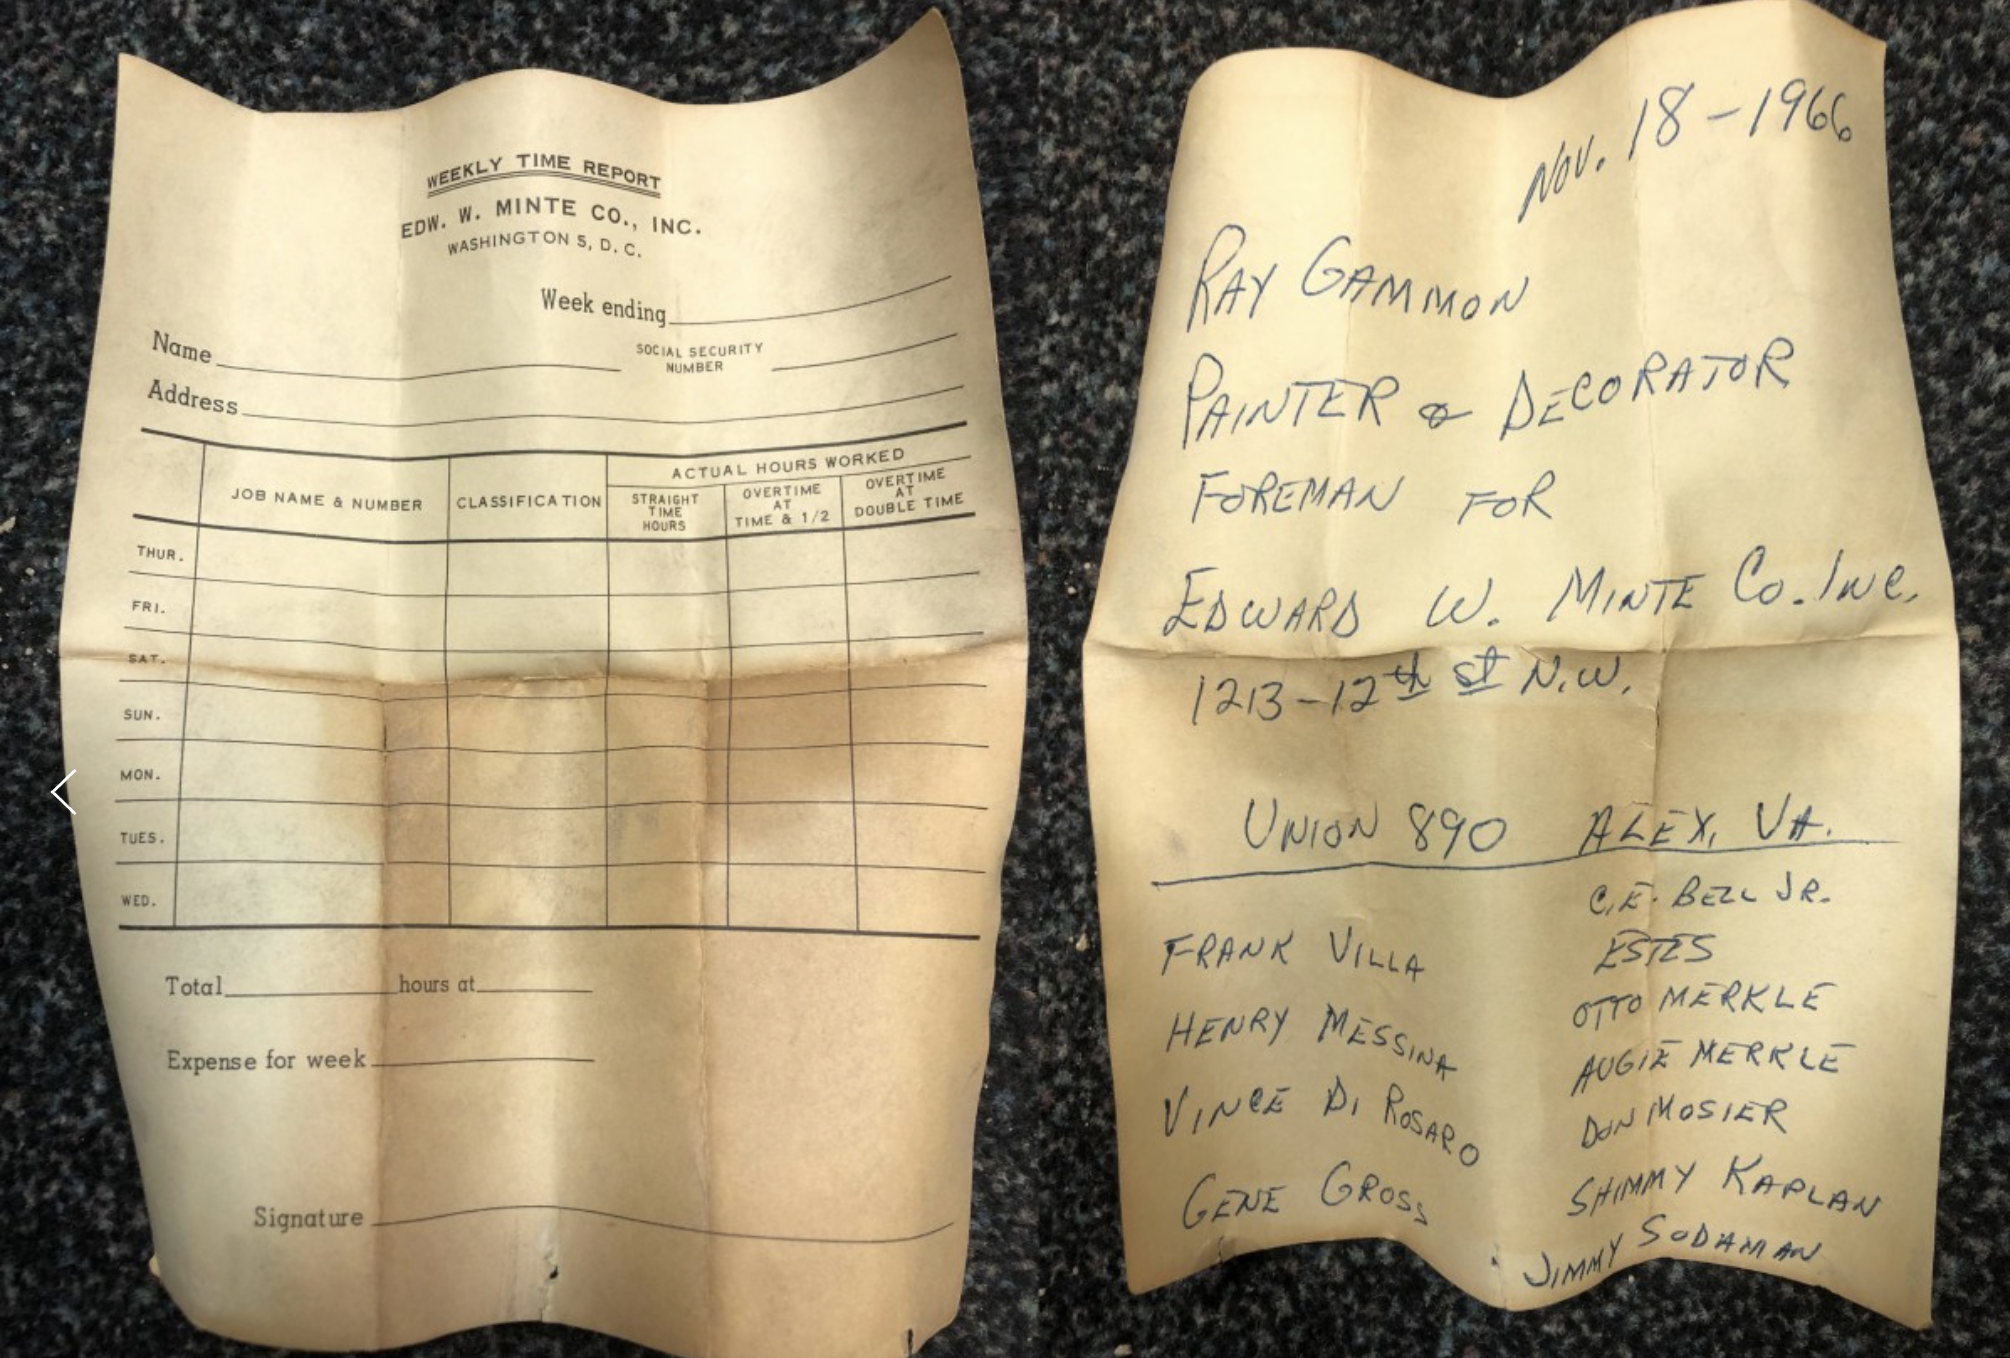 WEEKLY TIME REPORT
EDW. W. MINTE CO., INC.
WASHINGTON 5, D. C.
Week ending
Name
SOCIAL SECURITY
NUMBER
Address
ACTUAL HOURS WORKED
JOB NAME & NUMBER
CLASSIFICATION
STRAIGHT
TIME
HOURS
OVERTIME
AT
TIME & 1/2
OVERTIME
AT
DOUBLE TIME
THUR.
FRI.
SAT.
SUN.
MON.
TUES.
WED.
Total hours at
Expense for week
Signature
NOV. 18-1966
RAY GAMMON
PAINTER & DECORATOR
FOREMAN FOR
EDWARD W. MINTE Co. INC.
1213-12th st N.W.
UNION 890 ALEX, VA.
FRANK VILLA
HENRY MESSINA
VINCE DI ROSARO
GENE GROSS
C.E. BELL JR.
ESTES
OTTO MERKLE
AUGIE MERKLE
DON MOSIER
SHIMMY KAPLAN
JIMMY SODAMAN